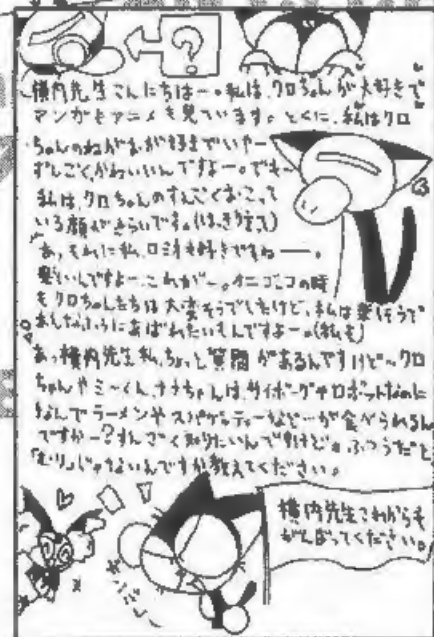 ?
横内先生こんにちはー。私は、クロちゃんが大好きで
マンガもアニメも見ています。とくに、私はクロ
ちゃんのねがおが好きでいやー
すんごく、かわいいんですよー。でも
私は、クロちゃんのすんごくおこって
いる顔がきらいです。(はっきりいって)
あ、それに私、ロミオも好きですねー。
も クロちゃんたちは大変そうでしたけど、私は楽しそうで
あんなふうにあばれたいもんですよー。(私も)
あっ横内先生私、ちょっと質問があるんですけどークロ
ちゃんやミーくん、ナナちゃんは、サイボーグやロボットなのに
なんでラーメンやスパゲッティーなどーが食べられるん
ですかー?すんごく知りたいんですけど。ふつうだと
「むり」じゃないんですか教えてください。
横内先生これからも
がんばってください。